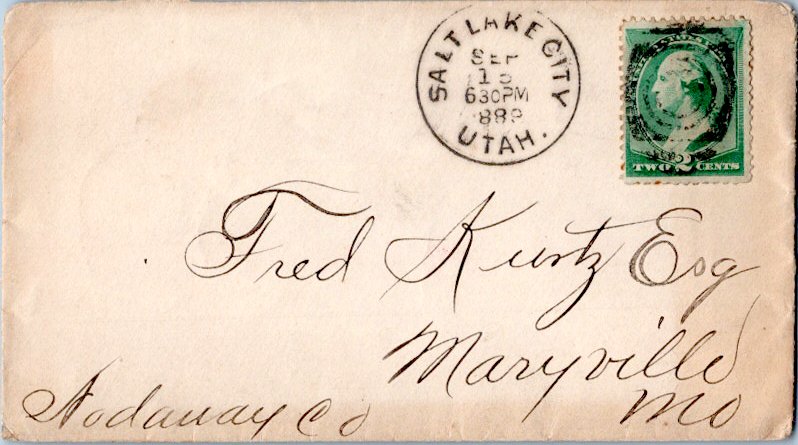 SALT LAKE CITY
SEP
15
630PM
188
UTAH.
TWO 2 CENTS
Fred Kurtz Esq
Maryville
Mo
Nodaway Co